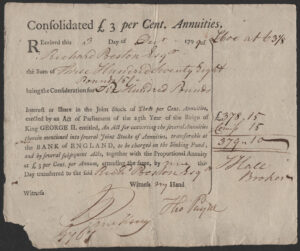 Consolidated £3 per Cent. Annuities.
Received this 3 Day of Decr 179
£600 at 63⅛
Richard Beeston Esqr
the Sum of Three Hundred Seventy Eight
Pounds 15/
being the Consideration for Six Hundred Pounds
Interest or Share in the Joint Stock of Three per Cent. Annuities,
erected by an Act of Parliament of the 25th Year of the Reign of
King GEORGE II. entitled, An Act for converting the several Annuities
therein mentioned into several Joint Stocks of Annuities, transferable at
the BANK of ENGLAND, to be charged on the Sinking Fund;
and by several subsequent Acts, together with the Proportional Annuity
at £3 per Cent. per Annum, attending the same, by me this
Day transferred to the said Richd Beeston Esqr
£378.15
Comn .15
379.10
Witness my Hand
Witness
Thos Payne
Broker